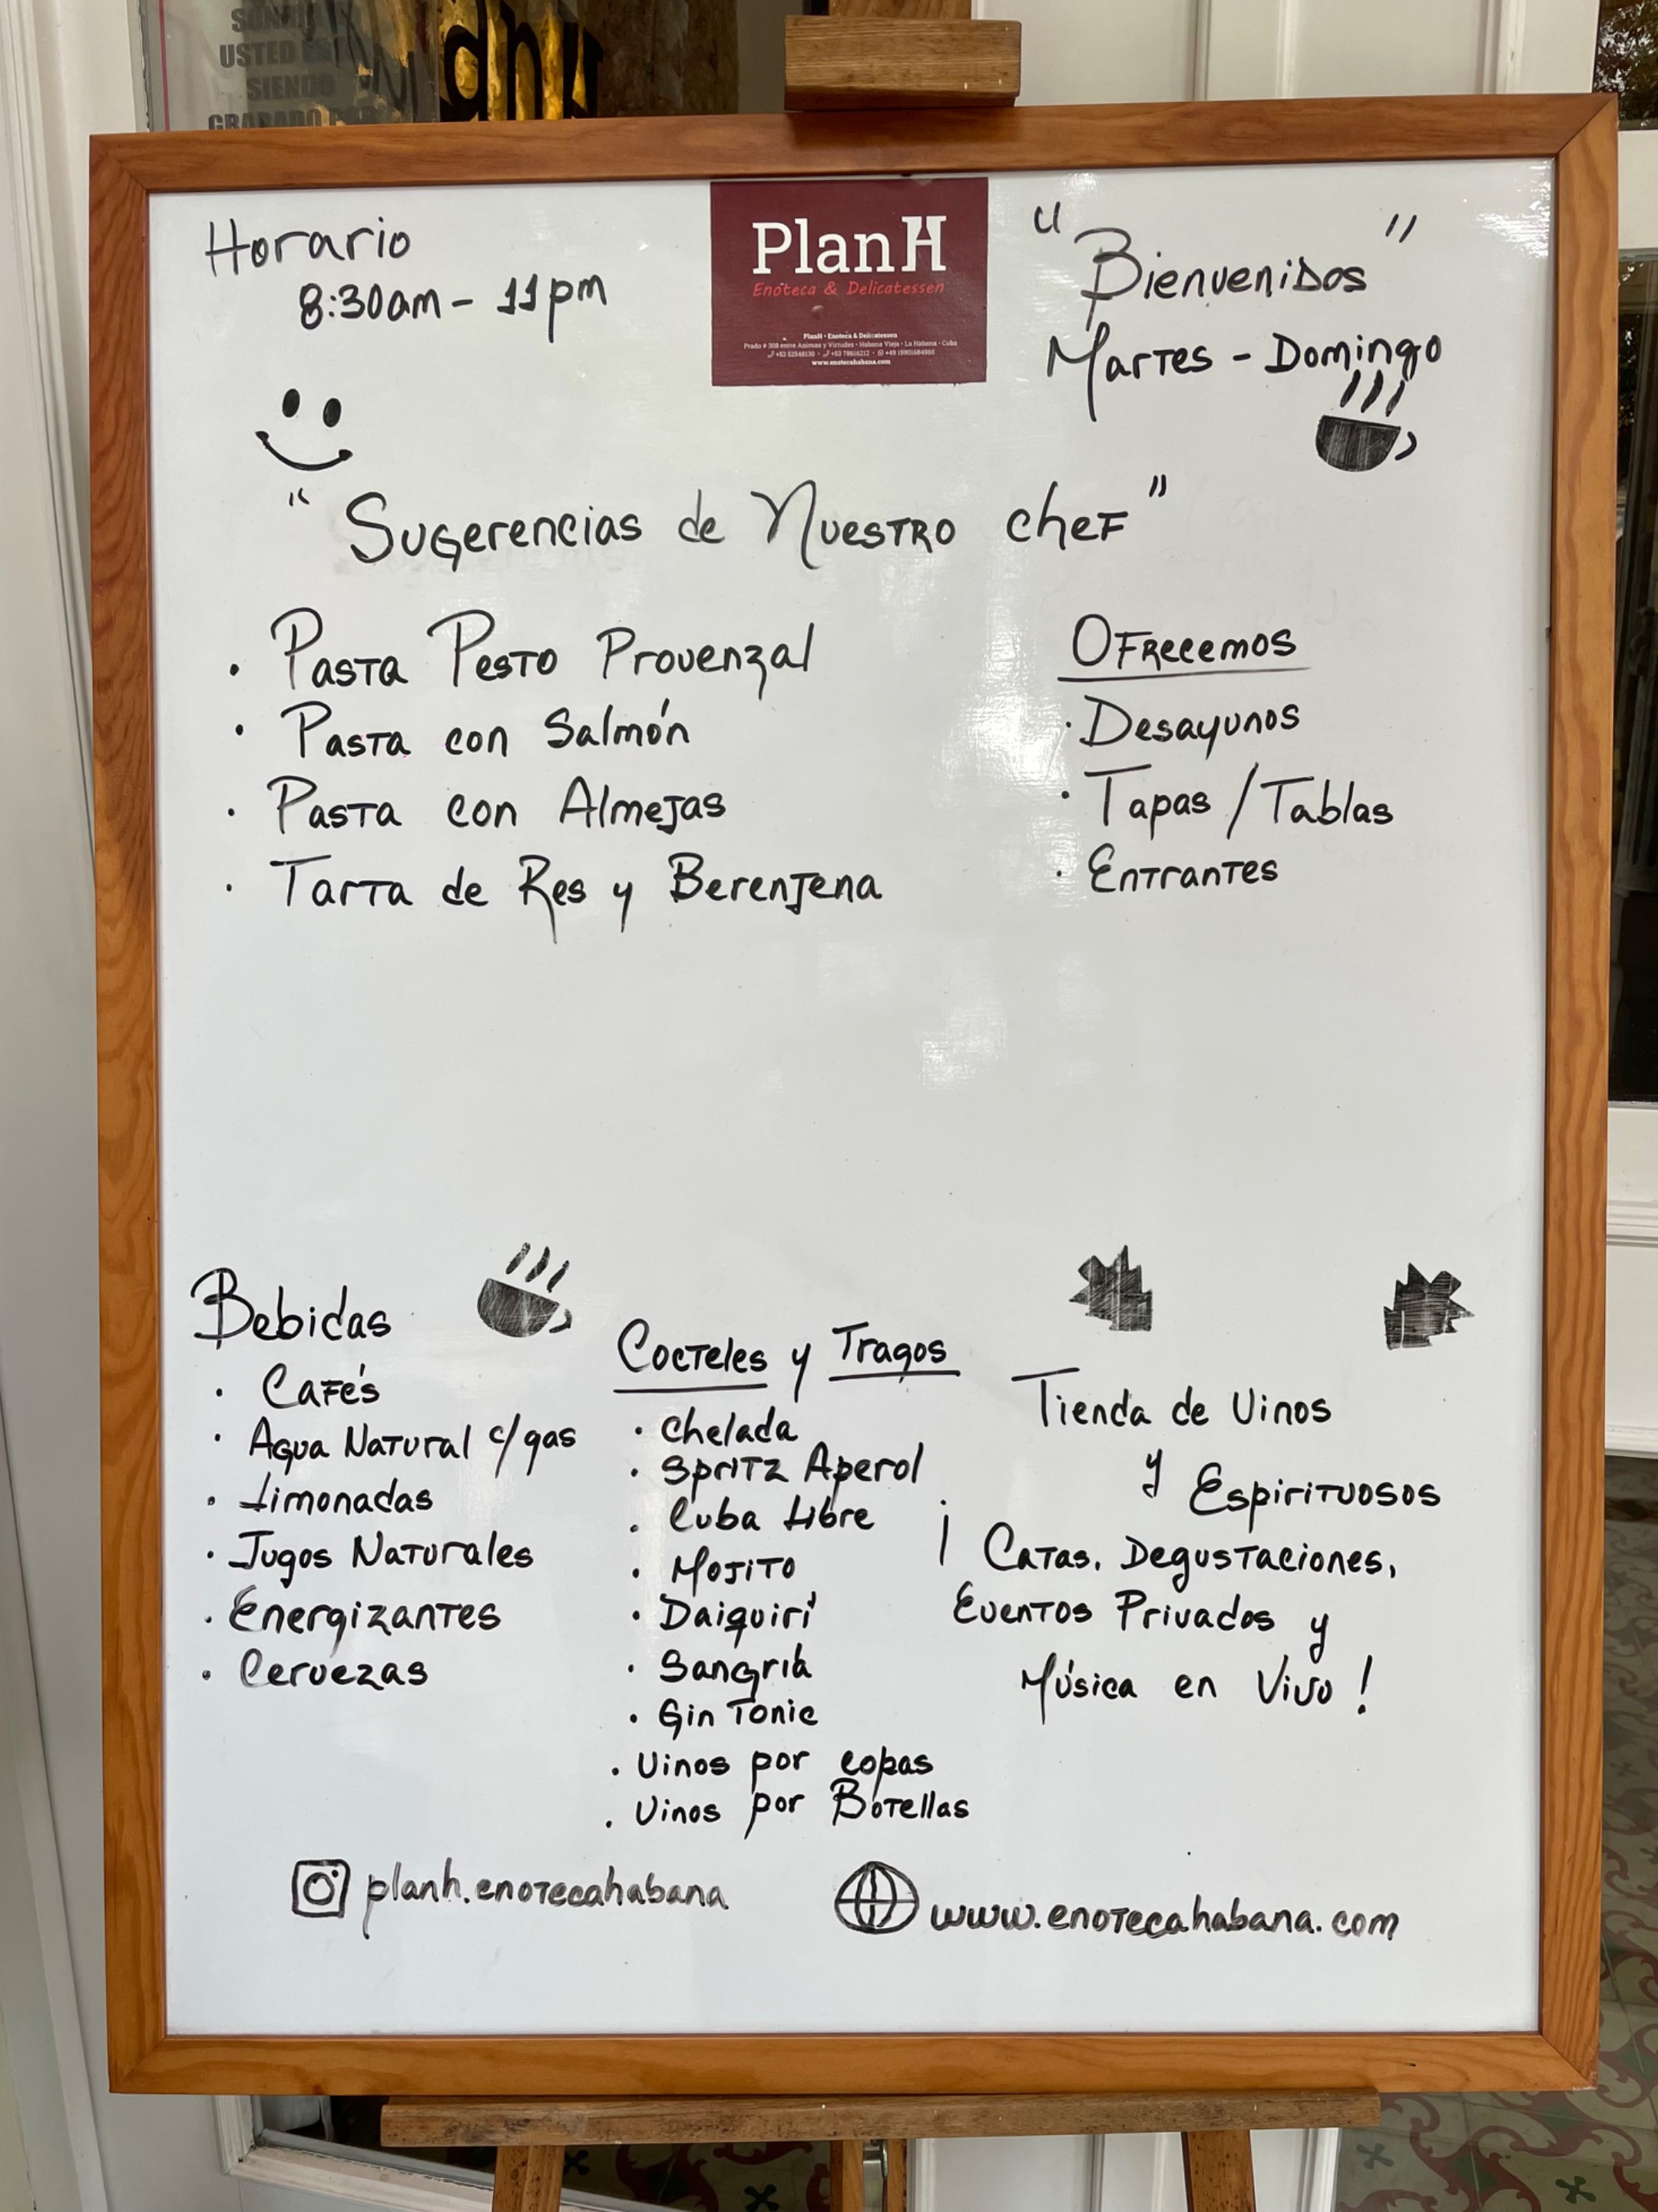 SONRÍA
USTED ES
SIENDO
GRABADO POR
Horario
8:30am - 11pm
PlanH
Enoteca & Delicatessen
PlanH • Enoteca & Delicatessen
Prado # 308 entre Animas y Virtudes • Habana Vieja • La Habana • Cuba
www.enotecahabana.com
"Bienvenidos"
Martes - Domingo
"Sugerencias de Nuestro chef"
• Pasta Pesto Provenzal
• Pasta con Salmón
• Pasta con Almejas
• Tarta de Res y Berenjena
Ofrecemos
• Desayunos
• Tapas / Tablas
• Entrantes
Bebidas
• Cafés
• Agua Natural c/gas
• Limonadas
• Jugos Naturales
• Energizantes
• Cervezas
Cocteles y Tragos
• Chelada
• Spritz Aperol
• Cuba Libre
• Mojito
• Daiquirí
• Sangría
• Gin Tonic
• Vinos por copas
• Vinos por Botellas
Tienda de Vinos
y Espirituosos
¡ Catas, Degustaciones,
Eventos Privados y
Música en Vivo !
planh.enotecahabana
www.enotecahabana.com